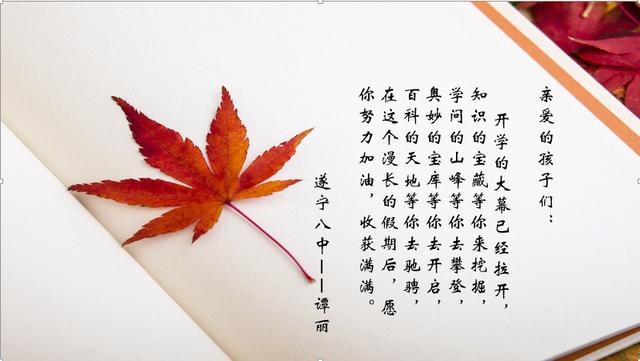 亲爱的孩子们：
开学的大幕已经拉开，
知识的宝藏等你来挖掘，
学问的山峰等你去攀登，
奥妙的宝库等你去开启，
百科的天地等你去驰骋，
在这个漫长的假期后，愿
你努力加油，收获满满。
遂宁八中——谭丽